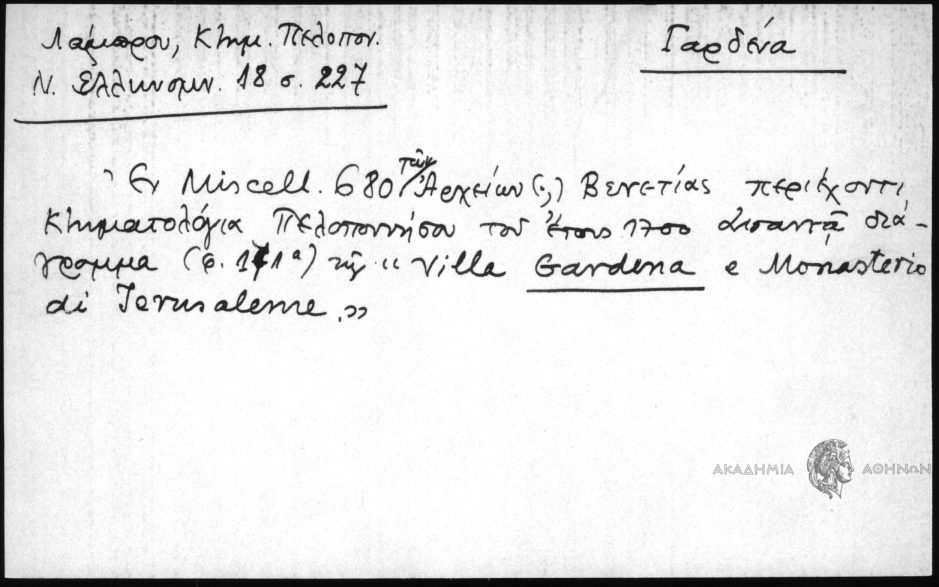 Λάμπρου, Κτημ. Πελοπον.
Ν. Ελληνομν. 18 σ. 227
Γαρδένα
Εν Miscell. 680 των Αρχείων (;) Βενετίας περιέχοντι
Κτηματολόγια Πελοποννήσου του έτους 1700 απαντά διά-
γραμμα (φ. 111α) της « Villa Gardena e Monasterio
di Jerusaleme. »
ΑΚΑΔΗΜΙΑ ΑΘΗΝΩΝ